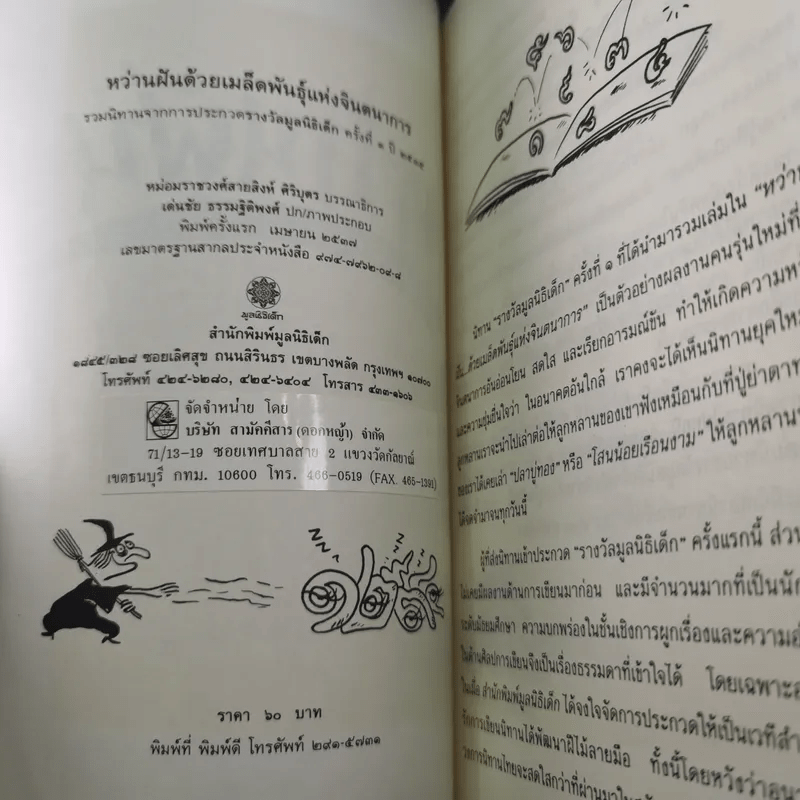 หว่านฝันด้วยเมล็ดพันธุ์แห่งจินตนาการ
รวมนิทานจากการประกวดรางวัลมูลนิธิเด็ก ครั้งที่ ๑ ปี
หม่อมราชวงศ์สายสิงห์ ศิริบุตร บรรณาธิการ
เด่นชัย ธรรมฐิติพงศ์ ปก/ภาพประกอบ
พิมพ์ครั้งแรก เมษายน ๒๕๓๗
เลขมาตรฐานสากลประจำหนังสือ ๙๗๔-๗๙๖๒-๐๙-๘
มูลนิธิเด็ก
สำนักพิมพ์มูลนิธิเด็ก
๑๘๔๕/๓๒๘ ซอยเลิศสุข ถนนสิรินธร เขตบางพลัด กรุงเทพฯ ๑๐๗๐๐
โทรศัพท์ ๔๒๔-๖๒๘๐, ๔๒๔-๖๔๐๔ โทรสาร ๔๓๓-๑๖๐๖
จัดจำหน่าย โดย
บริษัท สามัคคีสาร (ดอกหญ้า) จำกัด
71/13-19 ซอยเทศบาลสาย 2 แขวงวัดกัลยาณ์
เขตธนบุรี กทม. 10600 โทร. 466-0519 (FAX. 465-1391)
z z z z z z
ราคา ๖๐ บาท
พิมพ์ที่ พิมพ์ดี โทรศัพท์ ๒๙๑-๕๗๓๑
นิทาน "รางวัลมูลนิธิเด็ก" ครั้งที่ ๑ ที่ได้นำมารวมเล่มใน "หว่าน
ฝัน...ด้วยเมล็ดพันธุ์แห่งจินตนาการ" เป็นตัวอย่างผลงานคนรุ่นใหม่ที่
จินตนาการอันอ่อนโยน สดใส และเรียกอารมณ์ขัน ทำให้เกิดความ
และความชุ่มชื่นใจว่า ในอนาคตอันใกล้ เราคงจะได้เห็นนิทานยุคใหม่
ลูกหลานเราจะนำไปเล่าต่อให้ลูกหลานของเขาฟังเหมือนกับที่ปู่ย่าตา
ของเราได้เคยเล่า "ปลาบู่ทอง" หรือ "โสนน้อยเรือนงาม" ให้ลูกหลาน
ได้จดจำมาจนทุกวันนี้
ผู้ที่ส่งนิทานเข้าประกวด "รางวัลมูลนิธิเด็ก" ครั้งแรกนี้ ส่วน
ไม่เคยมีผลงานด้านการเขียนมาก่อน และมีจำนวนมากที่เป็นนัก
ระดับมัธยมศึกษา ความบกพร่องในชั้นเชิงการผูกเรื่องและความ
ในด้านศิลปการเขียนจึงเป็นเรื่องธรรมดาที่เข้าใจได้ โดยเฉพาะ
ในเมื่อ สำนักพิมพ์มูลนิธิเด็ก ได้จงใจจัดการประกวดให้เป็นเวที
รักการเขียนนิทานได้พัฒนาฝีไม้ลายมือ ทั้งนี้โดยหวังว่า
วงการนิทานไทยจะสดใสกว่าที่ผ่านมา